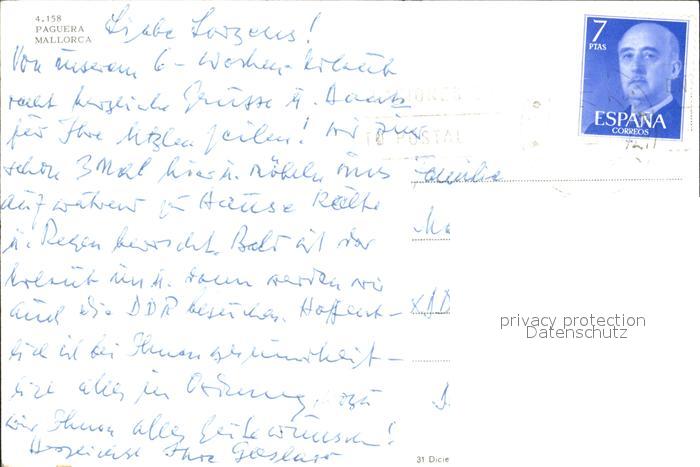 4.158
PAGUERA
MALLORCA
Liebe Lorzens!
Von unserem 6-Wochen-Urlaub
recht herzliche Grüsse u. Dank
für Ihre letzten Zeilen! Wir sind
schon 3 Mal hier u.
auf während zu Hause Kälte
u. Regen herrscht. Bald ist der
Urlaub um u. dann werden wir
auch die DDR besuchen. Hoffent-
lich ist bei Ihnen gesundheit-
lich alles in Ordnung, wozu
wir Ihnen alles Gute wünschen!
Herzlichst Ihre
7
PTAS
ESPAÑA
CORREOS
POSTAL
Familie
privacy protection
Datenschutz
31 Dicie